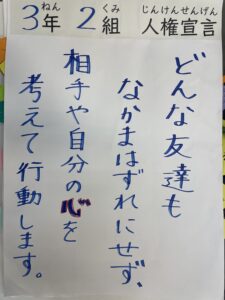 3年2組 人権宣言
ねん くみ じんけんせんげん
どんな友達も
なかまはずれにせず、
相手や自分の心を
考えて行動します。